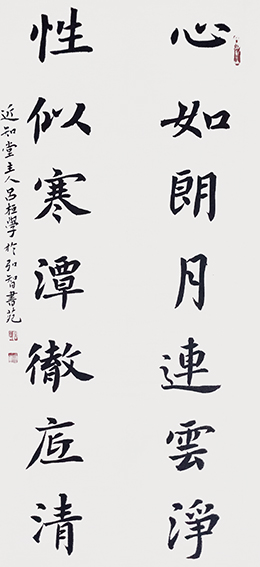 心如朗月連雲淨
性似寒潭徹底清
近知堂主人呂柱學於弘智書苑